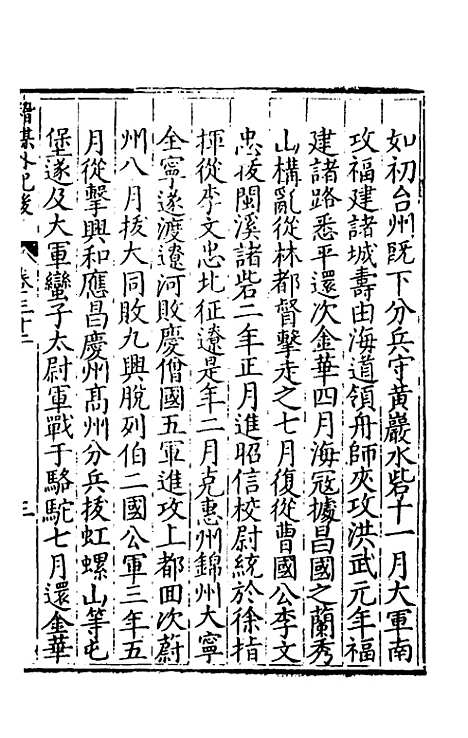 如初台州既下分兵守黄巖水砦十一月大軍南
攻福建諸城壽由海道領舟師夾攻洪武元年福
建諸路悉平還次金華四月海冦據昌國之蘭秀
山構亂從林都督擊走之七月復從曹國公李文
忠拔閩溪諸砦二年正月進昭信校尉統於徐指
揮從李文忠北征遼是年二月克惠州錦州大寧
全寧遂渡遼河敗慶僧國五軍進攻上都囬次蔚
州八月拔大同敗九興脫列伯二國公軍三年五
月從擊興和應昌慶州髙州分兵拔虹螺山等屯
堡遂及大軍蠻子太尉軍戰于駱駝七月還金華
卷三十二
三